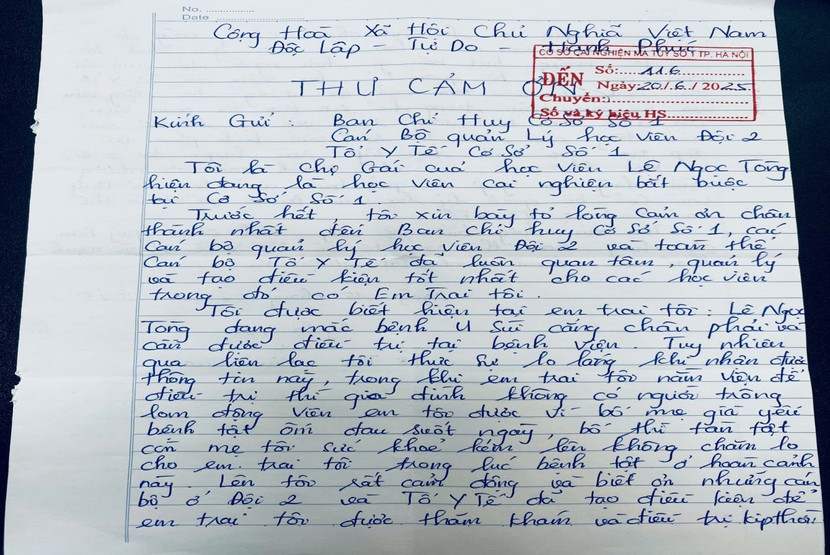 No. ....................
Date ....................
Công Hoà Xã Hội Chủ Nghiã Việt Nam
Độc Lập - Tự Do - Hạnh Phúc
CƠ SỞ CAI NGHIỆN MA TÚY SỐ 1 TP. HÀ NỘI
ĐẾN Số: 116
Ngày 20/6/2025
Chuyển:
Số và ký hiệu HS
THƯ CẢM ƠN
Kính Gửi: Ban Chỉ Huy Cơ Sở Số 1
Cán Bộ quản Lý học viên Đội 2
Tổ Y Tế Cơ Sở Số 1
Tôi là chị Gái của học viên Lê Ngọc Tòng
hiện đang là học viên cai nghiện bắt buộc
tại Cơ Sở Số 1.
Trước hết, tôi xin bày tỏ lòng cảm ơn chân
thành nhất đến Ban chỉ huy Cơ Sở Số 1, các
Cán bộ quản lý học viên Đội 2 và toàn thể
Cán bộ Tổ Y Tế đã luôn quan tâm, quản lý
và tạo điều kiện tốt nhất cho các học viên
trong đó có Em Trai tôi.
Tôi được biết hiện tại em trai tôi: Lê Ngọc
Tòng đang mắc bệnh U sùi cẳng chân phải và
cần được điều trị tại bệnh viện. Tuy nhiên
qua liên lạc tôi thực sự lo lắng khi nhận được
thông tin này, trong khi em trai tôi nằm viện để
điều trị thì gia đình không có người trông
lom động viên em tôi được vì bố mẹ già yếu
bệnh tật ốm đau suốt ngày, bố thì tàn tật
còn mẹ tôi sức khoẻ kém lên không chăm lo
cho em trai tôi trong lúc bệnh tật ở hoàn cảnh
này. Lên tôi rất cảm động và biết ơn những cán
bộ ở Đội 2 và Tổ Y Tế đã tạo điều kiện để
em trai tôi được thăm khám và điều trị kịp thời